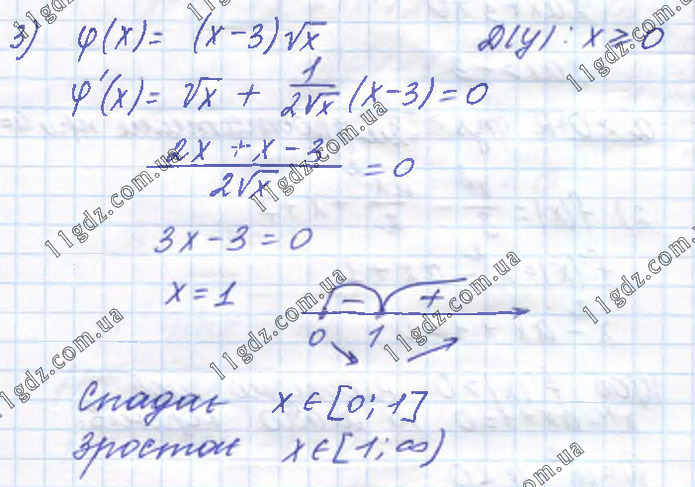 3) φ(x) = (x-3)√x D(y): x ≥ 0
φ'(x) = √x + 1/(2√x) (x-3) = 0
(2x + x - 3)/(2√x) = 0
3x - 3 = 0
x = 1
- +
0 1
Спадає x ∈ [0; 1]
Зростає x ∈ [1; ∞)
11gdz.com.ua
11gdz.com.ua
11gdz.com.ua
11gdz.com.ua
11gdz.com.ua
11gdz.com.ua
11gdz.com.ua
11gdz.com.ua